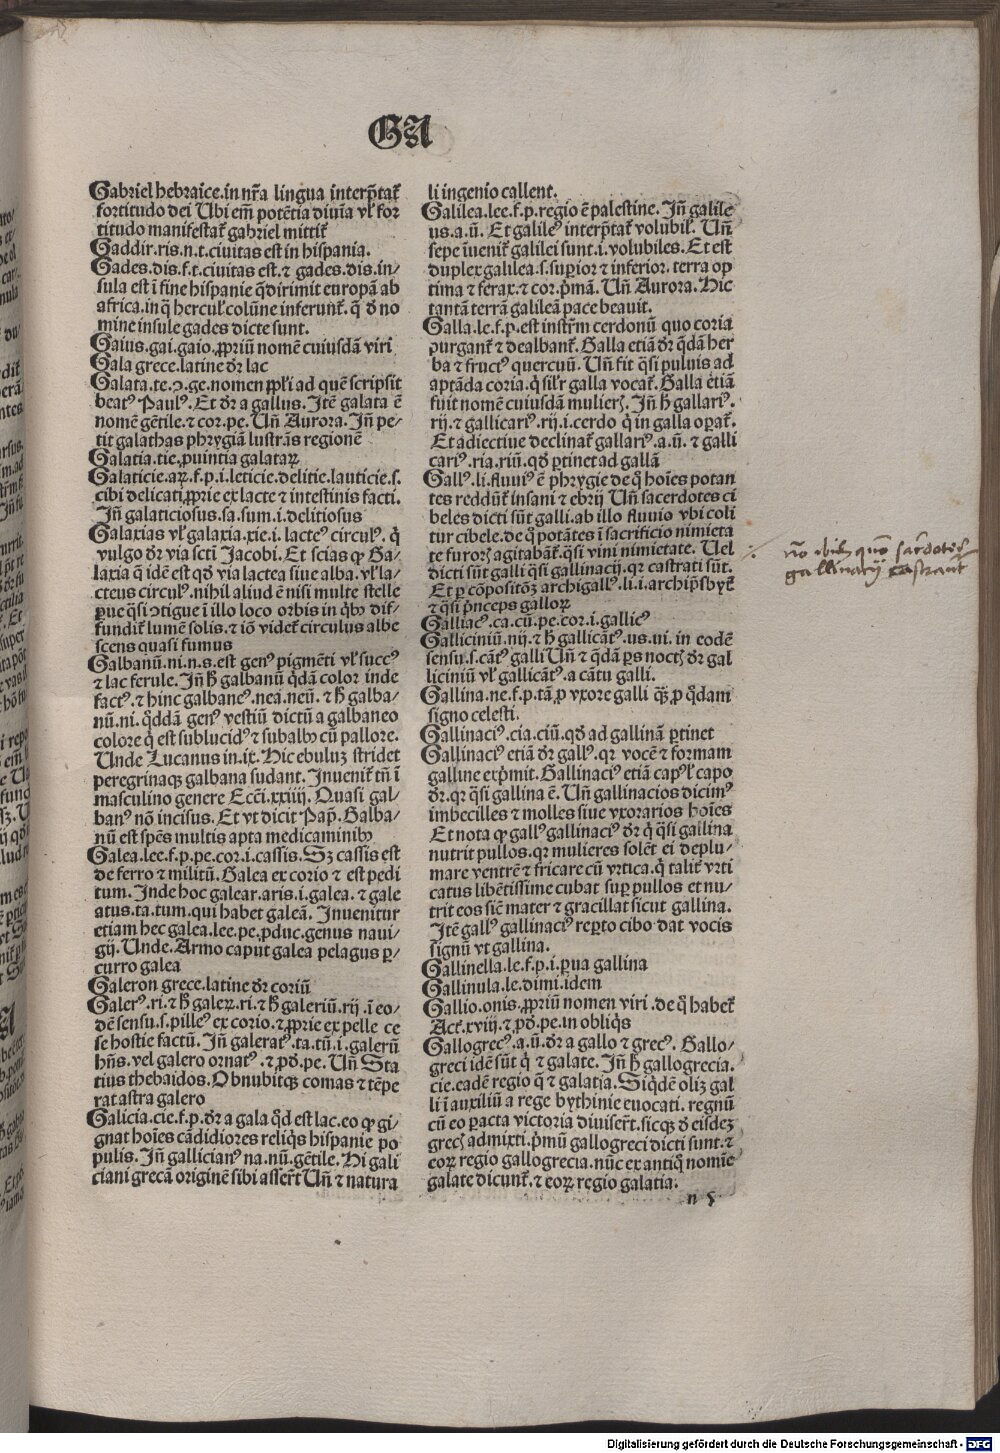 GA
Gabriel hebraice.in nr̄a lingua interp̄tat᷒
fortitudo dei Ubi em̄ potētia diuīa vl᷒ for
titudo manifestat᷒ gabriel mittit᷒
Gaddir.ris.n.t.ciuitas est in hispania.
Gades.dis.f.t.ciuitas est.⁊ gades.dis.in/
sula est ī fine hispanie q̄dirimit europā ab
africa.in q̇ hercul᷒ colūne inferunt᷒. q̄ d̄ no
mine insule gades dicte sunt.
Gaius.gai.gaio.ꝓpriū nomē cuiusdā viri
Gala grece.latine dr̄ lac
Galata.te.ↄ.ge.nomen ppl᷒i ad quē scripsit
beatꝰ Paulꝰ. Et dr̄ a gallus. Itē galata ē
nomē gētile.⁊ cor.pe. Un̄ Aurora. In̄ pe/
tit galathas phrygiā lustrās regionē
Galatia.tie.ꝓuintia galataꝝ
Galaticie.aꝝ.f.p.i.leticie.delitie.lauticie.s.
cibi delicati.ꝓprie ex lacte ⁊ intestinis facti.
In̄ galaticiosus.sa.sum.i.delitiosus
Galaxias vl᷒ galaxia.xie.i.lacteꝰ circulꝰ. q̇
vulgo dr̄ via scti Jacobi. Et scias ꝙ Ga/
laxia q̄ idē est qd̄ via lactea siue alba. vl᷒ la/
cteus circulꝰ.nihil aliud ē nisi multe stelle
ꝑue q̄si ↄtigue ī illo loco orbis in q̇bꝰ dif/
fundit᷒ lumē solis.⁊ iō videt᷒ circulus albe
scens quasi fumus
Galbanū.ni.n.s.est genꝰ pigmēti vl᷒ succꝰ
⁊ lac ferule. In̄ h̄ galbanū q̄dā color inde
factꝰ.⁊ hinc galbaneꝰ.nea.neū.⁊ h̄ galba/
nū.ni.q̄ddā genꝰ vestiū dictū a galbaneo
colore q̇ est sublucidꝰ ⁊ subalbꝰ cū pallore.
Unde Lucanus in.ix. Hic ebuluꝫ stridet
peregrinaqꝫ galbana sudant. Inuenit᷒ tn̄ ī
masculino genere Ecc̄i.xxiiij. Quasi gal/
banꝰ nō incisus. Et vt dicit Pap̄. Galba/
nū est sp̄es multis apta medicaminibꝰ
Galea.lee.f.p.pe.cor.i.cassis. Sꝫ cassis est
de ferro ⁊ militū. Galea ex corio ⁊ est pedi
tum. Inde hoc galear.aris.i.galea.⁊ gale
atus.ta.tum.qui habet galeā. Inuenitur
etiam hec galea.lee.pe.ꝓduc.genus naui/
gij. Unde. Armo caput galea pelagus ꝑ/
curro galea
Galeron grece.latine dr̄ coriū
Galerꝰ.ri.⁊ h̄ galeꝝ.ri.⁊ h̄ galeriū.rij.ī eo/
dē sensu.s.pilleꝰ ex corio.⁊ ꝓprie ex pelle ce
se hostie factū. In̄ galeratꝰ.ta.tū.i.galerū
hn̄s.vel galero ornatꝰ.⁊ ꝓd̄.pe. Un̄ Sta
tius thebaidos. Obnubitqꝫ comas ⁊ tēpe
rat astra galero
Galicia.cie.f.p.dr̄ a gala q̄d est lac.eo ꝙ gi/
gnat hoīes cādidiores reliq̇s hispanie po
pulis. In̄ gallicianꝰ na.nū.gētile. Hi gali
ciani grecā originē sibi assert᷒ Un̄ ⁊ natura
li ingenio callent.
Galilea.lee.f.p.regio ē palestine. In̄ galile
us.a.ū. Et galileꝰ interp̄tat᷒ volubil᷒. Un̄
sepe īuenit᷒ galilei sunt.i.volubiles. Et est
duplex galilea.s.suꝑior ⁊ inferior.terra op
tima ⁊ ferax.⁊ cor.p̄mā. Un̄ Aurora. Hic
tantā terrā galileā pace beauit.
Galla.le.f.p.est instrm̄ cerdonū quo coria
purgant᷒ ⁊ dealbant᷒. Galla etiā dr̄ q̄dā her
ba ⁊ fructꝰ quercuū. Un̄ fit q̄si puluis ad
aptāda coria.q̇ sil᷒r galla vocat᷒. Galla etiam
fuit nomē cuiusdā mulierꝭ. In̄ h̄ gallariꝰ.
rij.⁊ gallicariꝰ.rij.i.cerdo q̇ in galla oꝑat᷒.
Et adiectiue declinat᷒ gallariꝰ.a.ū.⁊ galli
cariꝰ.ria.riū.qd̄ ꝑtinet ad gallā
Gallꝰ.li.fluuiꝰ ē phrygie de q̇ hoīes potan
tes reddūt᷒ insani ⁊ ebrij Un̄ sacerdotes ci
beles dicti sūt galli.ab illo fluuio vbi coli
tur cibele.de q̇ potātes ī sacrificio nimieta
te furorꝭ agitabāt᷒.q̄si vini nimietate. Uel
dicti sūt galli q̄si gallinacij.qr castrati sūt.
Et ꝑ cōpositōꝫ archigallꝰ.li.i.archip̄sbyt᷒
⁊ q̄si p̄nceps galloꝝ
Galliacꝰ.ca.cū.pe.cor.i.gallicꝰ
Galliciniū.nij.⁊ h̄ gallicātꝰ.us.ui.in eodē
sensu.s.cātꝰ galli Un̄ ⁊ q̄dā ꝑs noctꝭ dr̄ gal
liciniū vl᷒ gallicātꝰ.a cātu galli.
Gallina.ne.f.p.tā ꝓ vxore galli qꝫ ꝓ q̄dani
signo celesti.
Gallinaciꝰ.cia.ciū.qd̄ ad gallinā ꝑtinet
Gallinaciꝰ etiā dr̄ gallꝰ.qr vocē ⁊ formam
galline exp̄mit. Gallinaciꝰ etiā capꝰ l᷒ capo
dr̄.qr q̄si gallina ē. Un̄ gallinacios dicimꝰ
imbecilles ⁊ molles siue vxorarios hoīes
Et nota ꝙ gallꝰ gallinaciꝰ dr̄ q̇ q̄si gallina
nutrit pullos.qr mulieres solēt ei deplu/
mare ventrē ⁊ fricare cū vrtica.q̇ talit᷒ vrti
catus libētissime cubat suꝑ pullos et nu/
trit eos sic̄ mater ⁊ gracillat sicut gallina.
Itē gallꝰ gallinaciꝰ reꝑto cibo dat vocis
signū vt gallina.
Gallinella.le.f.p.i.ꝑua gallina
Gallinula.le.dimi.idem
Gallio.onis.ꝓpriū nomen viri.de q̇ habet᷒
Act᷒.xviij.⁊ ꝓd̄.pe.in obliq̇s
Gallogrecꝰ.a.ū.dr̄ a gallo ⁊ grecꝰ. Gallo/
greci idē sūt q̇ ⁊ galate. In̄ h̄ gallogrecia.
cie.eadē regio q̄ ⁊ galatia. Siq̄dē oliꝫ gal
li ī auxiliū a rege bythinie euocati.regnū
cū eo ꝑacta victoria diuiserūt.sicqꝫ d̄ eisdeꝫ
grecꝭ admixti.p̄mū gallogreci dicti sunt.⁊
eoꝝ regio gallogrecia.nūc ex antiq̇ nomīe
galate dicunt᷒.⁊ eoꝝ regio galatia.
n 5
quō sacerdotes
gallinacij castrant᷒
Digitalisierung gefördert durch die Deutsche Forschungsgemeinschaft - DFG